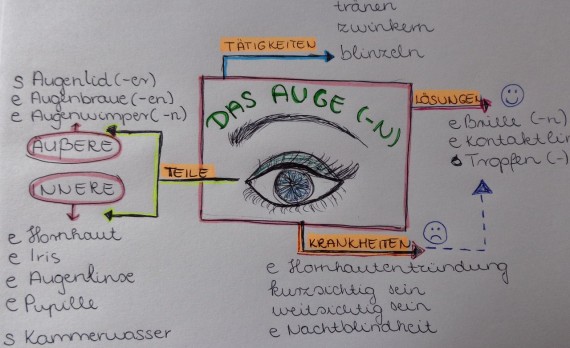 tränen
zwinkern
TÄTIGKEITEN
blinzeln
s Augenlid (-er)
e Augenbraue (-en)
e Augenwimper (-n)
ÄUßERE
INNERE
TEILE
DAS AUGE (-N)
LÖSUNGEN
e Brille (-n)
e Kontaktlin
Tropfen (-)
KRANKHEITEN
e Hornhautentzündung
kurzsichtig sein
weitsichtig sein
e Nachtblindheit
e Hornhaut
e Iris
e Augenlinse
e Pupille
s Kammerwasser